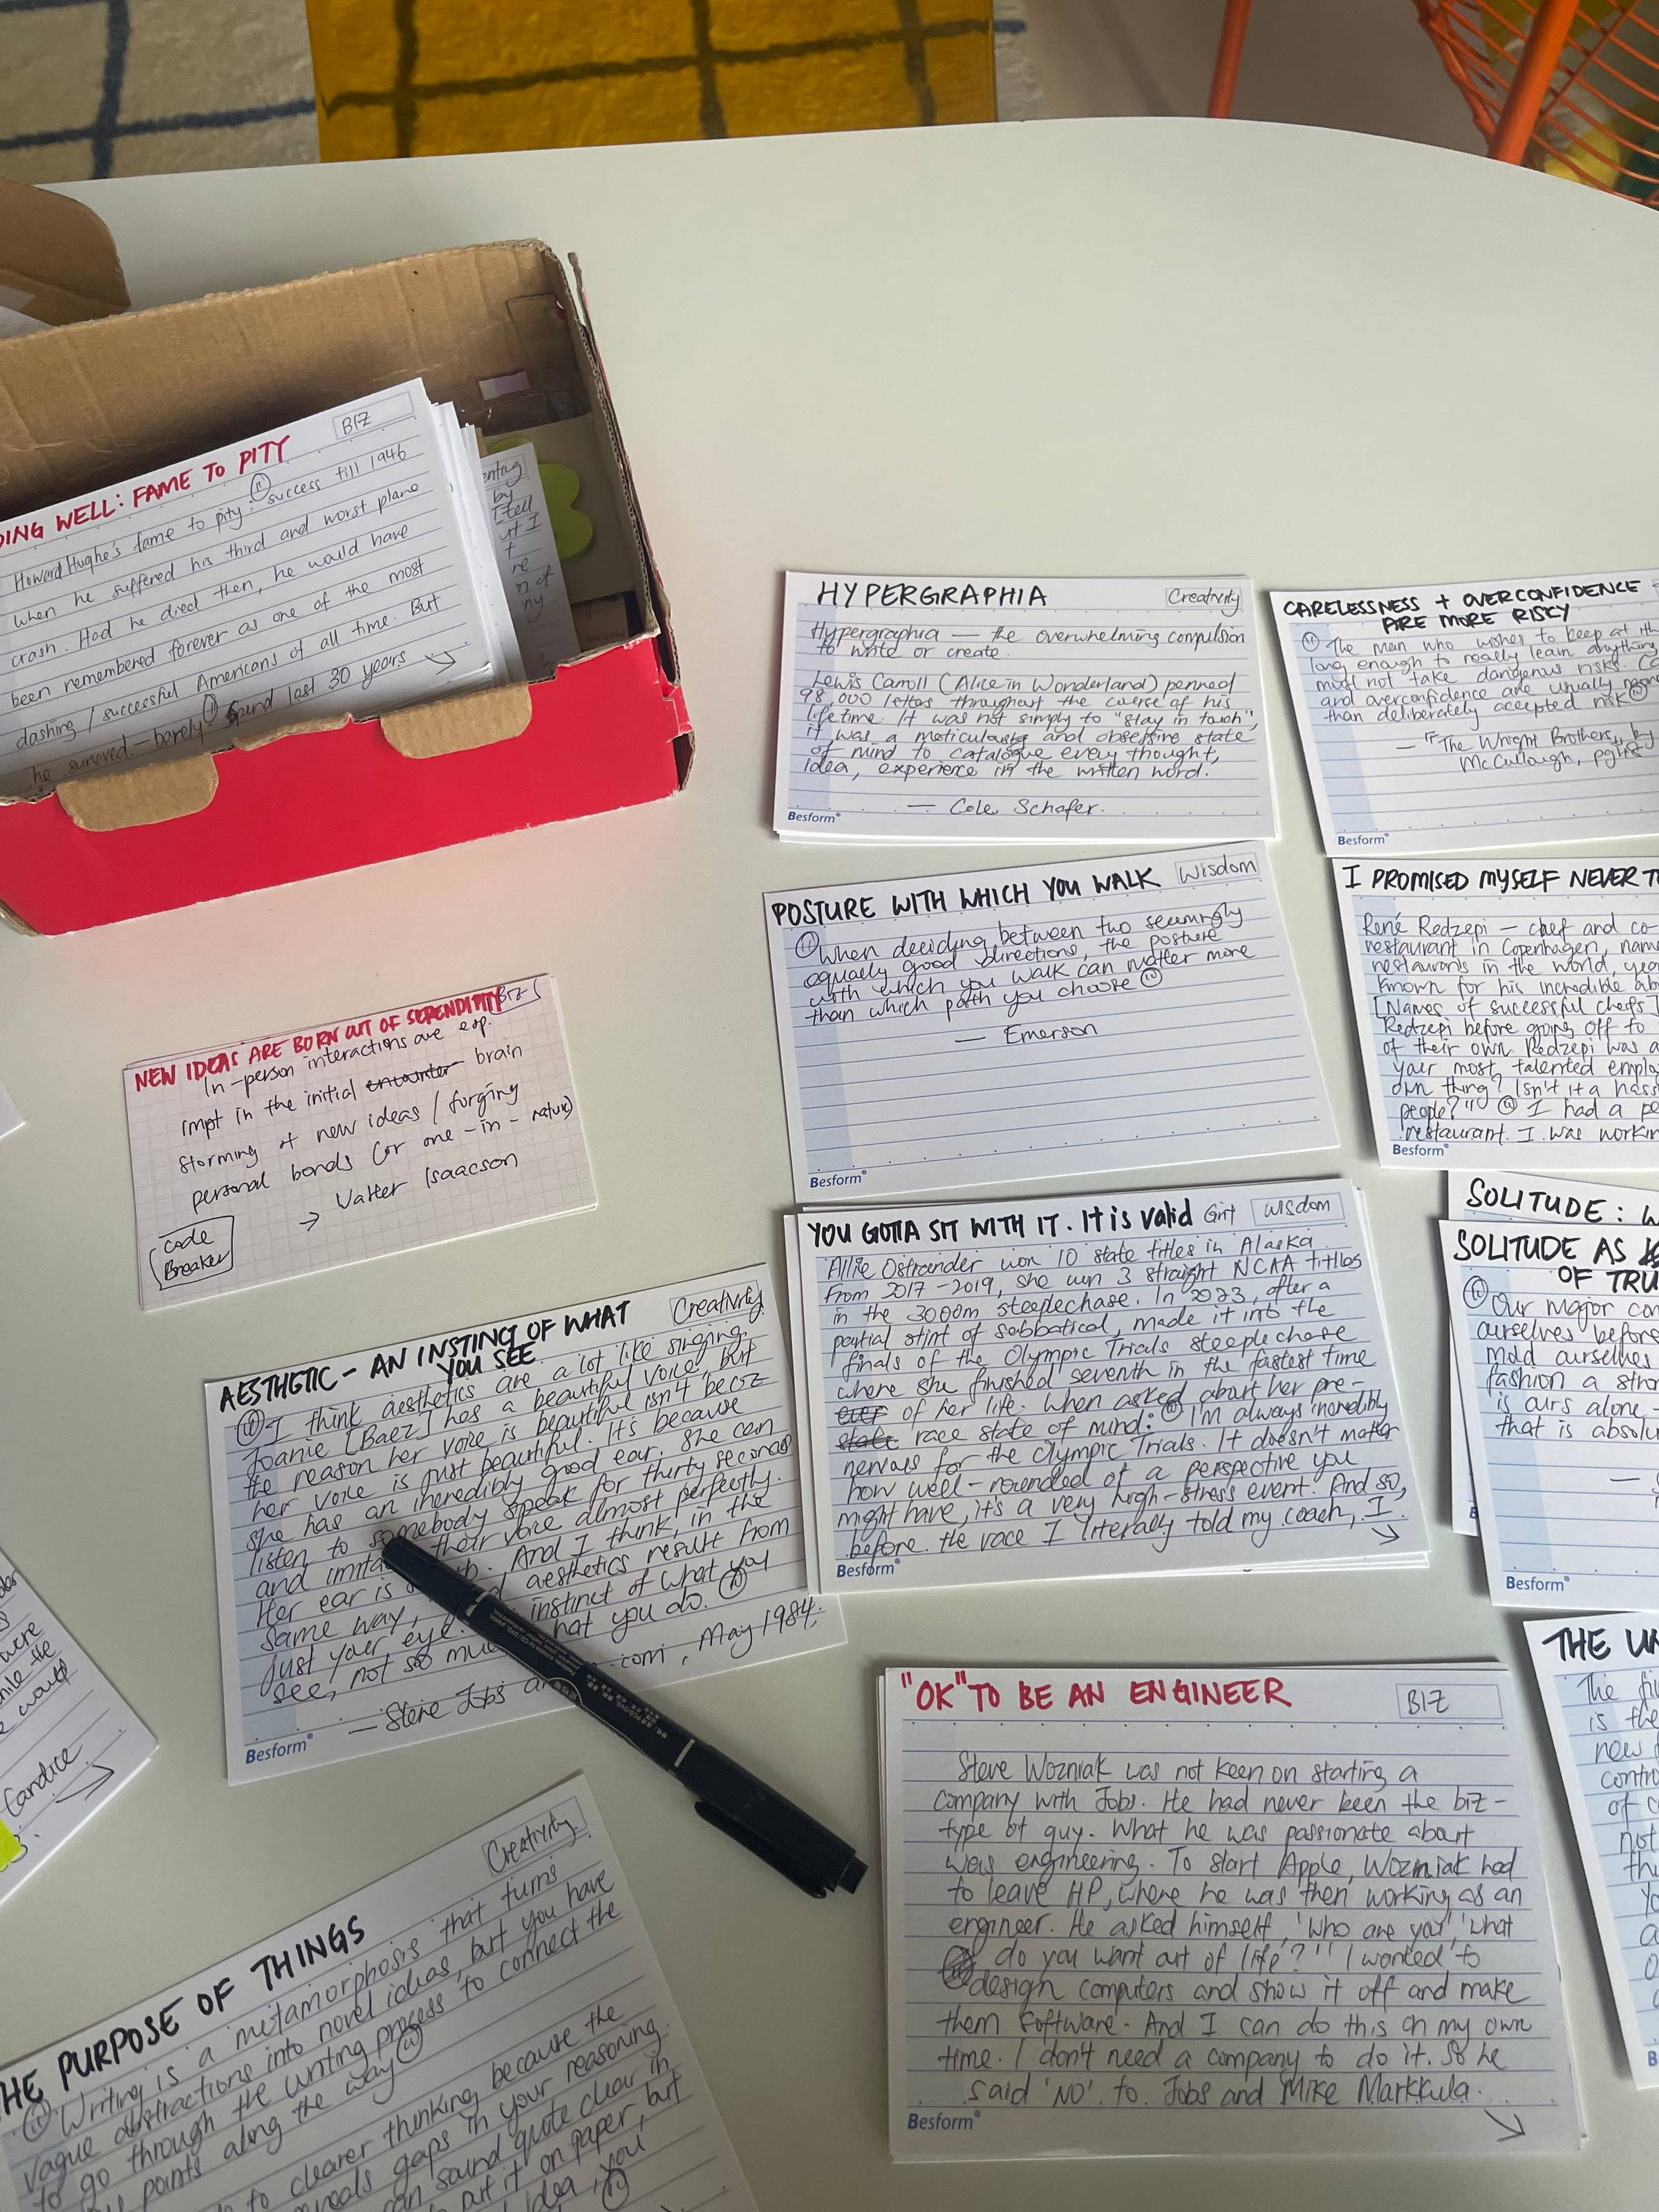 DING WELL: FAME TO PITY
BIZ
Howard Hughe's fame to pity: " success till 1946
when he suffered his third and worst plane
crash. Had he died then, he would have
been remembered forever as one of the most
dashing / successful Americans of all time. But
he survived - barely" Spend last 30 years
enting
by
I tell
ut I
t
re
n of
ny
HYPERGRAPHIA
Creativity
Hypergraphia — the overwhelming compulsion
to write or create.
Lewis Carroll (Alice in Wonderland) penned
98,000 letters throughout the course of his
lifetime. It was not simply to "stay in touch",
it was a meticulous and obsessive state
of mind to catalogue every thought,
idea, experience in the written word.
— Cole Schafer.
Besform®
CARELESSNESS + OVERCONFIDENCE
ARE MORE RISKY
" The man who wishes to keep at th
long enough to really learn anything
must not take dangerous risks. Ca
and overconfidence are usually more
than deliberately accepted risk "
— "The Wright Brothers, by
McCullough,
Besform®
POSTURE WITH WHICH YOU WALK
Wisdom
" When deciding between two seemingly
equally good directions, the posture
with which you walk can matter more
than which path you choose "
— Emerson
Besform®
I PROMISED MYSELF NEVER T
René Redzepi — chef and co-
restaurant in Copenhagen, name
restaurants in the world, year
known for his incredible abi
[Names of successful chefs]
Redzepi before going off to
of their own. Redzepi was a
your most talented emplo
own thing? Isn't it a hass
people?" " I had a pe
restaurant. I was workin
Besform®
NEW IDEAS ARE BORN OUT OF SERENDIPITY
BIZ
In-person interactions are esp.
impt in the initial encounter brain
storming of new ideas / forging
personal bonds (or one-in-nature)
→ Walter Isaacson
Code
Breaker
YOU GOTTA SIT WITH IT. It is valid
Grit
Wisdom
Allie Ostrander won 10 state titles in Alaska
From 2017-2019, she won 3 straight NCAA titles
in the 3000m steeplechase. In 2023, after a
partial stint of sabbatical, made it into the
finals of the Olympic Trials steeplechase
where she finished seventh in the fastest time
ever of her life. When asked about her pre-
state race state of mind: " I'm always incredibly
nervous for the Olympic Trials. It doesn't matter
how well-rounded of a perspective you
might have, it's a very high-stress event. And so,
before the race I literally told my coach, I
Besform®
SOLITUDE: W
SOLITUDE AS
OF TRU
" Our major con
ourselves before
mold ourselves
fashion a stro
is ours alone-
that is absolu
Besform®
AESTHETIC - AN INSTINCT OF WHAT
YOU SEE
Creativity
" I think aesthetics are a lot like singing.
Joanie [Baez] has a beautiful voice, but
the reason her voice is beautiful isn't becoz
her voice is just beautiful. It's because
she has an incredibly good ear. She can
listen to somebody speak for thirty seconds
and imita their voice almost perfectly.
Her ear is . And I think, in the
same way, aesthetics result from
just your eye. instinct of what you
see, not so mu hat you do. "
— Steve Jobs .com, May 1984.
Besform®
"OK" TO BE AN ENGINEER
BIZ
Steve Wozniak was not keen on starting a
company with Jobs. He had never been the biz-
type of guy. What he was passionate about
was engineering. To start Apple, Wozniak had
to leave HP, where he was then working as an
engineer. He asked himself, 'who are you', 'what
do you want out of life?' 'I wanted to
design computers and show it off and make
them software. And I can do this on my own
time. I don't need a company to do it. So he
said 'NO' to Jobs and Mike Markkula.
Besform®
THE UN
The fi
is the
new
contro
of c
not
th
Yo
were
while the
would
Candice
HE PURPOSE OF THINGS
Creativity
" Writing is a metamorphosis that turns
vague abstractions into novel ideas, but you have
to go through the writing process to connect the
points along the way "
to clearer thinking because the
reveals gaps in your reasoning.
can sound quote clear in
put it on paper, but
idea, you